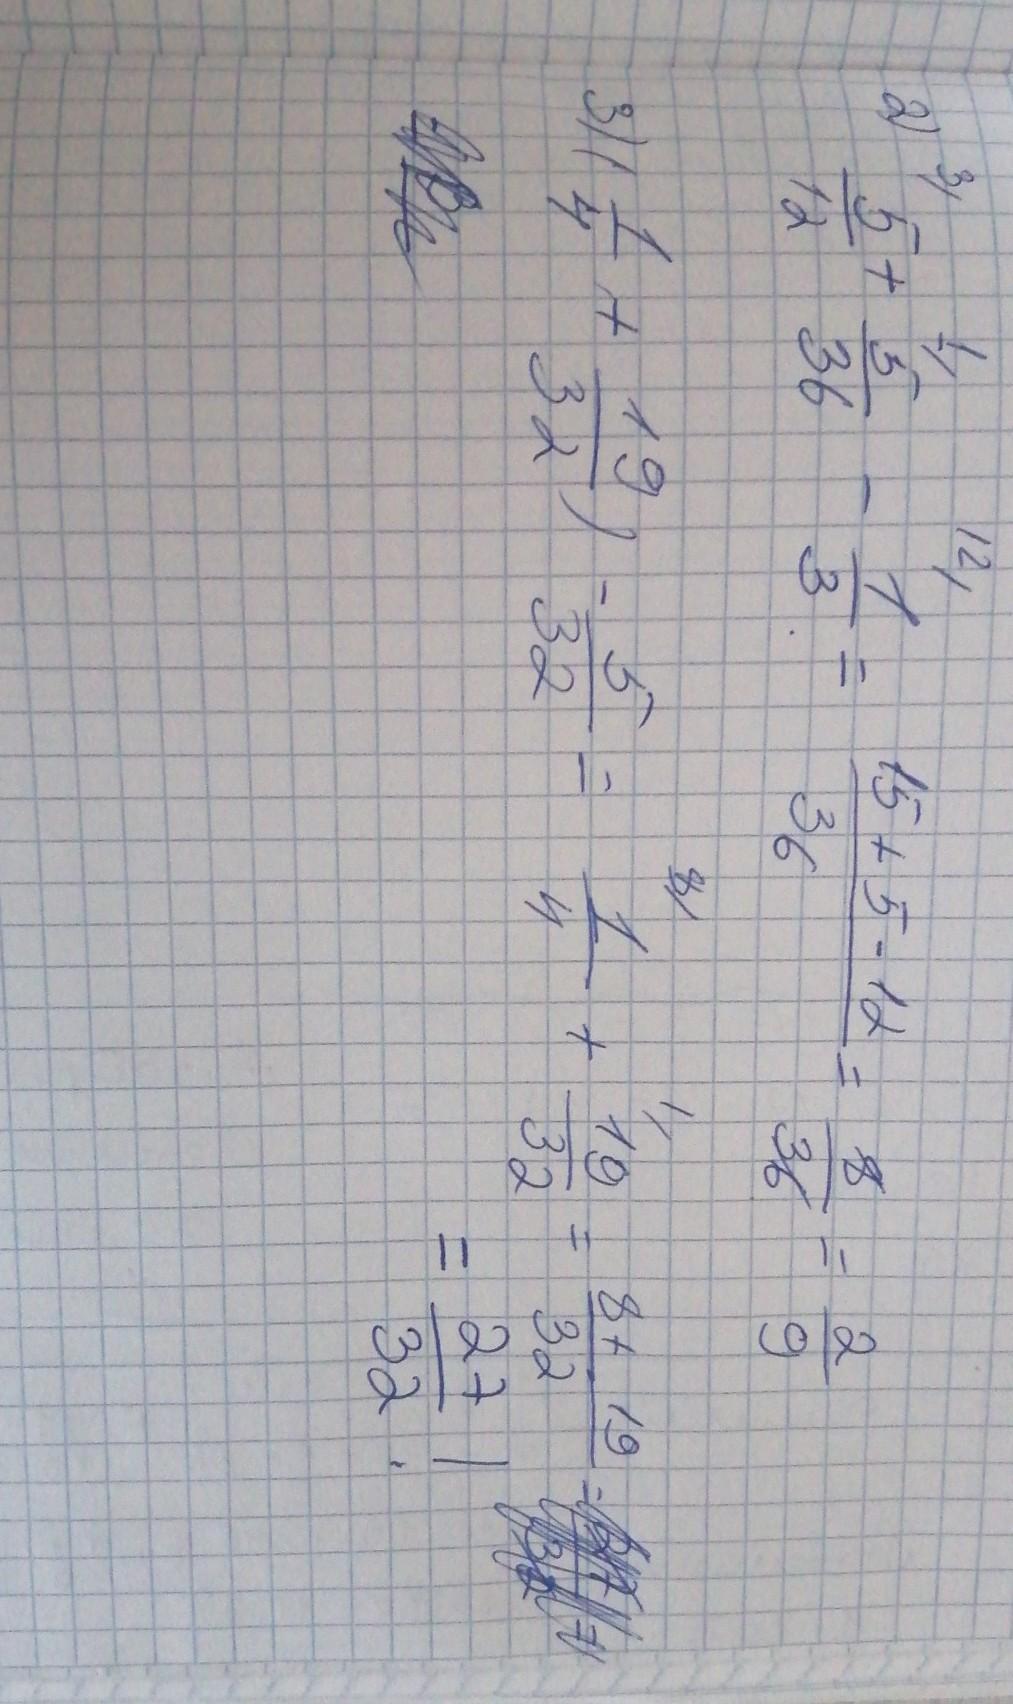 2) 3) 5/12 + 1) 5/36 - 12) 1/3 = 15+5-12/36 = 8/36 = 2/9
3) (1/4 + 19/32) - 5/32 = 8) 1/4 + 1) 19/32 = 8+19/32 =
= 27/32